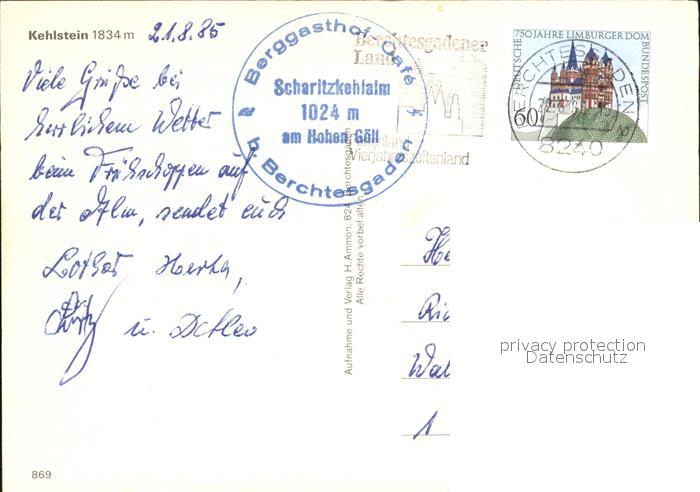 Kehlstein 1834 m 21.8.85
Viele Grüße bei
herrlichem Wetter
beim Frühschoppen auf
der Alm, sendet euch
Lothar Herta,
u. Detlev
Berggasthof-Café
Scharitzkehlalm
1024 m
am Hohen Göll
b. Berchtesgaden
Berchtesgadener
Land
Vierjahreszeitenland
DEUTSCHE BUNDESPOST
750 JAHRE LIMBURGER DOM
60
BERCHTESGADEN
8240
Aufnahme und Verlag H. Ammon, 824 Berchtesgaden
Alle Rechte vorbehalten
He
Ric
Wal
1
privacy protection
Datenschutz
869